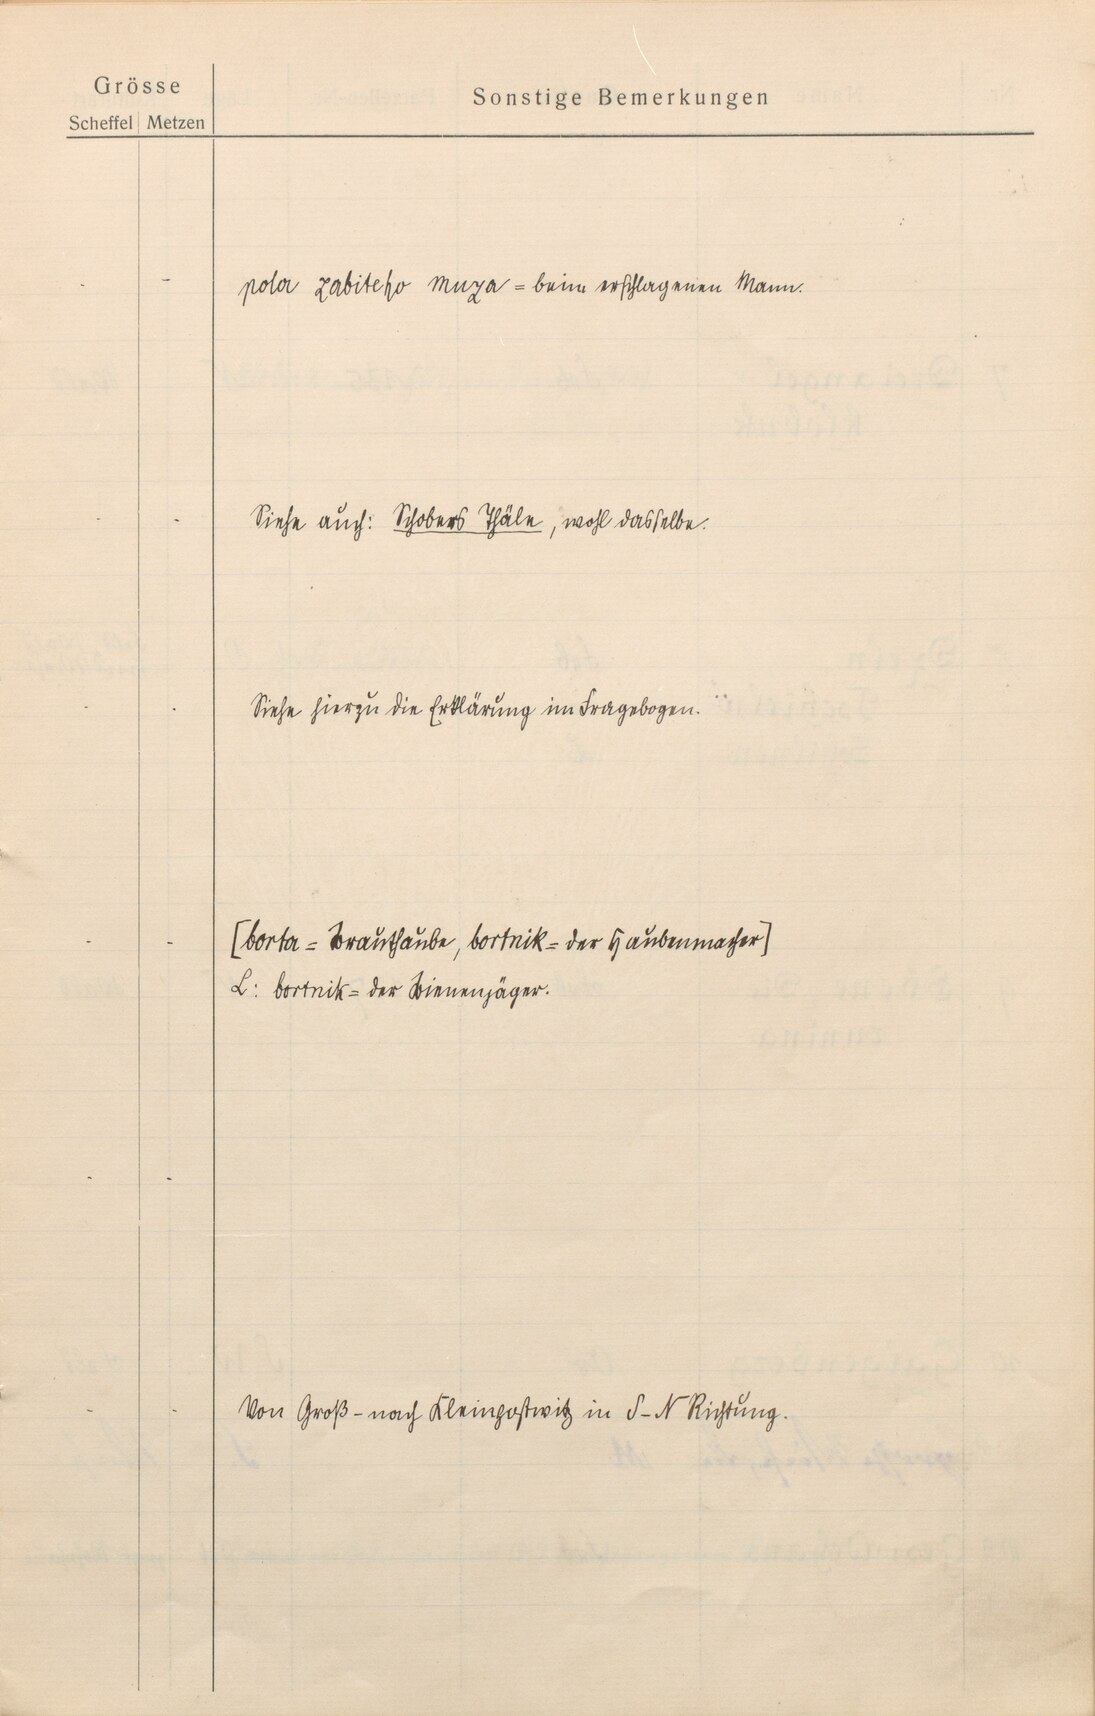 Grösse
Scheffel Metzen
Sonstige Bemerkungen
- - pola zabiteho muza = beim erschlagenen Mann.
- - Siehe auch: Schobers Thäle, wohl dasselbe.
- - Siehe hierzu die Erklärung im Fragebogen.
- - [borta = Brauthaube, bortnik = der Haubenmacher]
L: bortnik = der Bienenjäger.
- -
- - Von Groß- nach Kleinpostwitz in S-N Richtung.